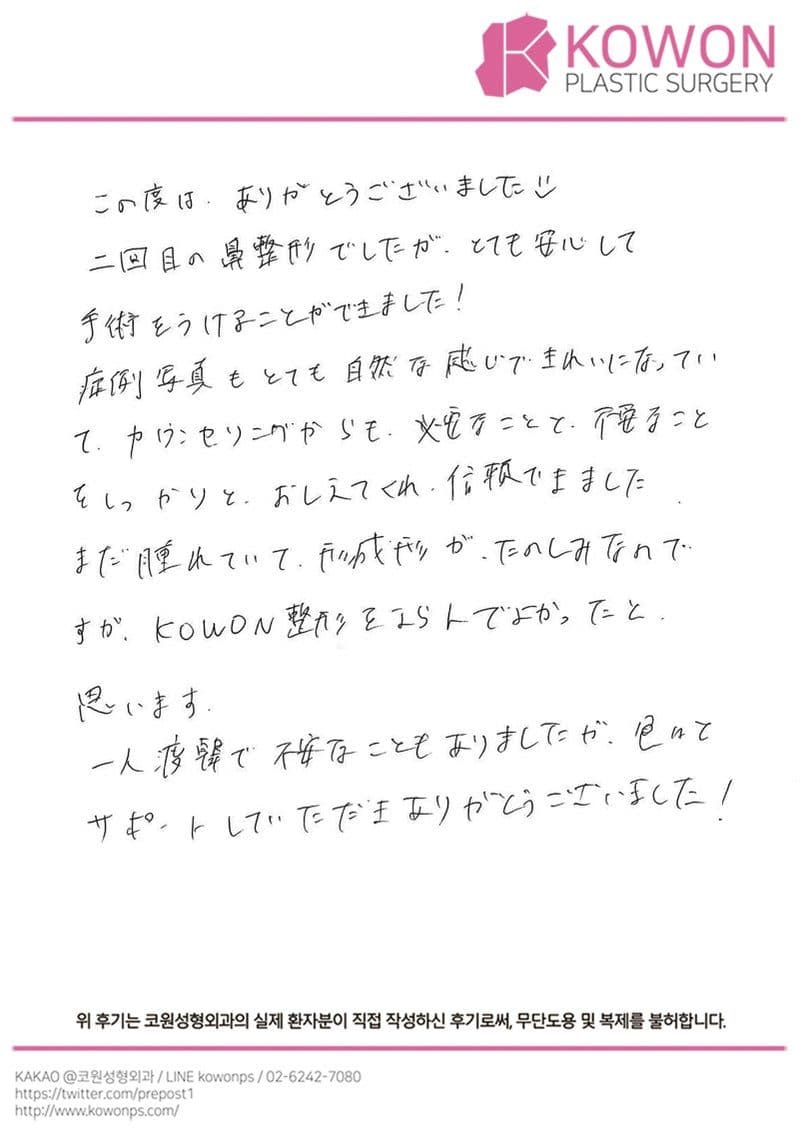 KOWON
PLASTIC SURGERY
この度は、ありがとうございました
二回目の鼻整形でしたが、とても安心して
手術をうけることができました!
症例写真もとても自然な感じできれいになってい
て、カウンセリングからも、必要なことと、不要なこと
をしっかりと、おしえてくれ、信頼できました
まだ腫れていて、形成形が、たのしみなので
すが、KOWON整形をえらんでよかったと、
思います。
一人渡韓で不安なこともありましたが、色々と
サポートしていただきありがとうございました!
위 후기는 코원성형외과의 실제 환자분이 직접 작성하신 후기로써, 무단도용 및 복제를 불허합니다.
KAKAO @코원성형외과 / LINE kowonps / 02-6242-7080
https://twitter.com/prepost1
http://www.kowonps.com/